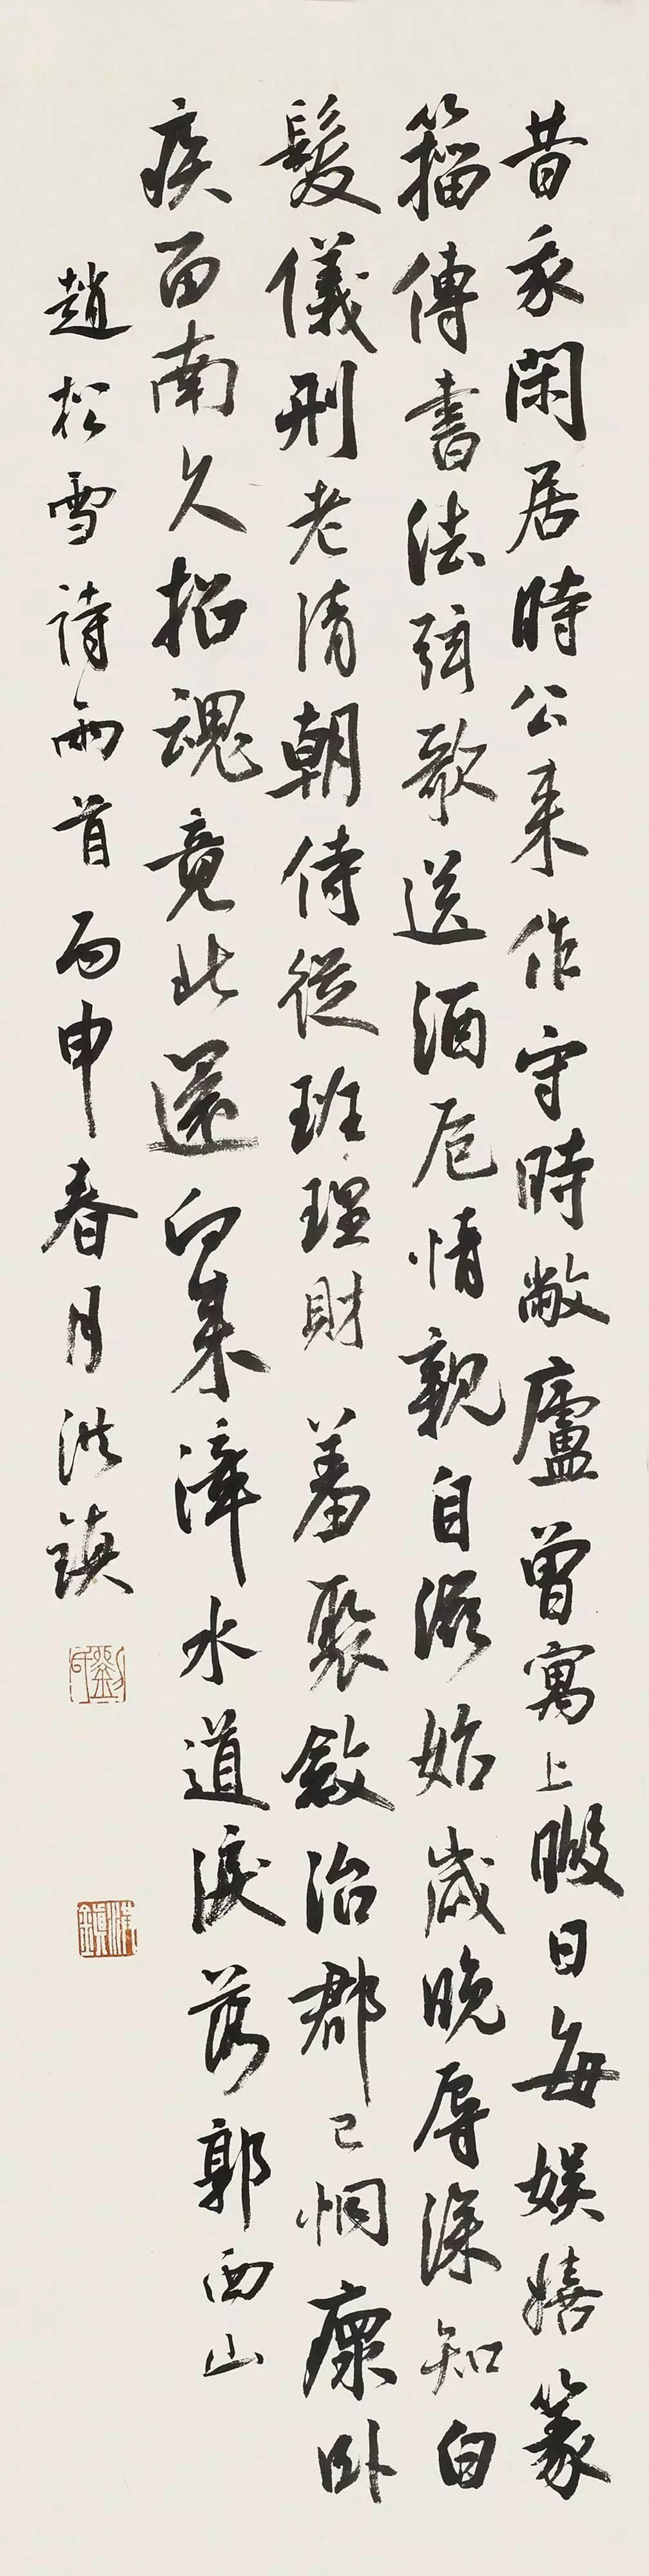 昔我閑居時公來作守時敝廬曾寓上暇日每娛嬉篆
籀傳書法弦歌送酒卮情親自滋始歲晚辱深知白
髮儀刑老清朝侍從班理財羞聚斂治郡已恫瘝卧
疾面南久招魂竟北還向來漳水道淚落郭西山
趙松雪詩兩首丙申春月洪鎮
洪鎮